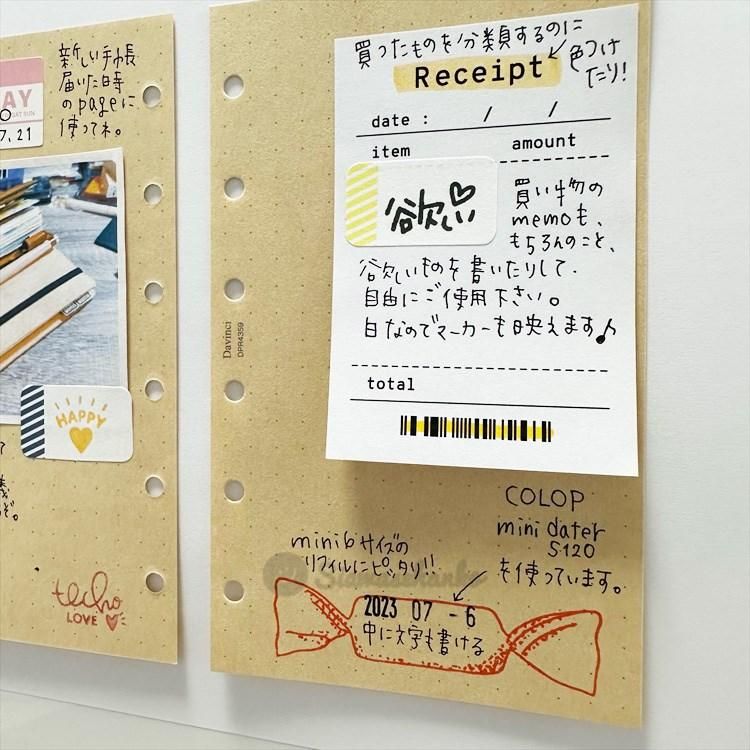 新しい手帳
届いた時
のpageに
使ってネ。
AY
SAT SUN
7.21
HAPPY
techo
LOVE
買ったものを分類するのに
色つけ
たり!
Receipt
date : / /
item amount
欲しい
買い物の
memoも、
もちろんのこと、
欲しいものを書いたりして、
自由にご使用下さい。
白なのでマーカーも映えます♪
total
Davinci
DPR4359
COLOP
mini dater
S120
を使っています。
mini6サイズの
リフィルにピッタリ!!
2023 07 - 6
中に文字も書ける